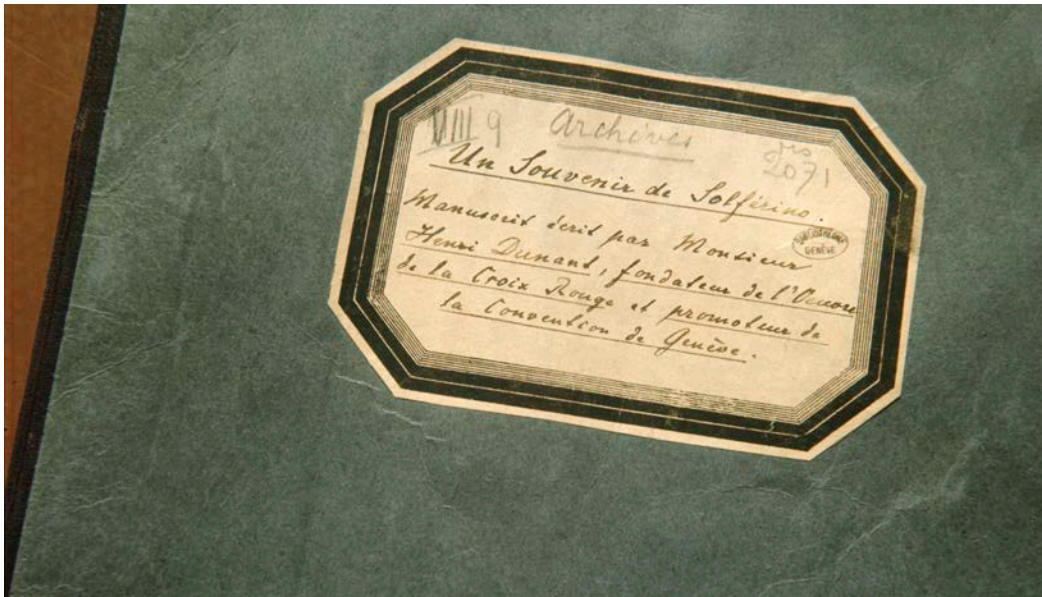 VIII 9 Archives
ms 2071
Un Souvenir de Solférino.
Manuscrit écrit par Monsieur
Henri Dunant, fondateur de l'Oeuvre
de la Croix Rouge et promoteur de
la Convention de Genève.
GENÈVE